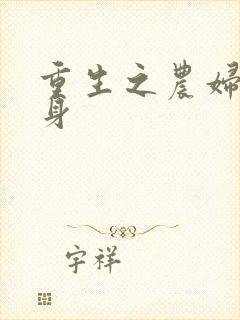 重生之農婦
身
字祥